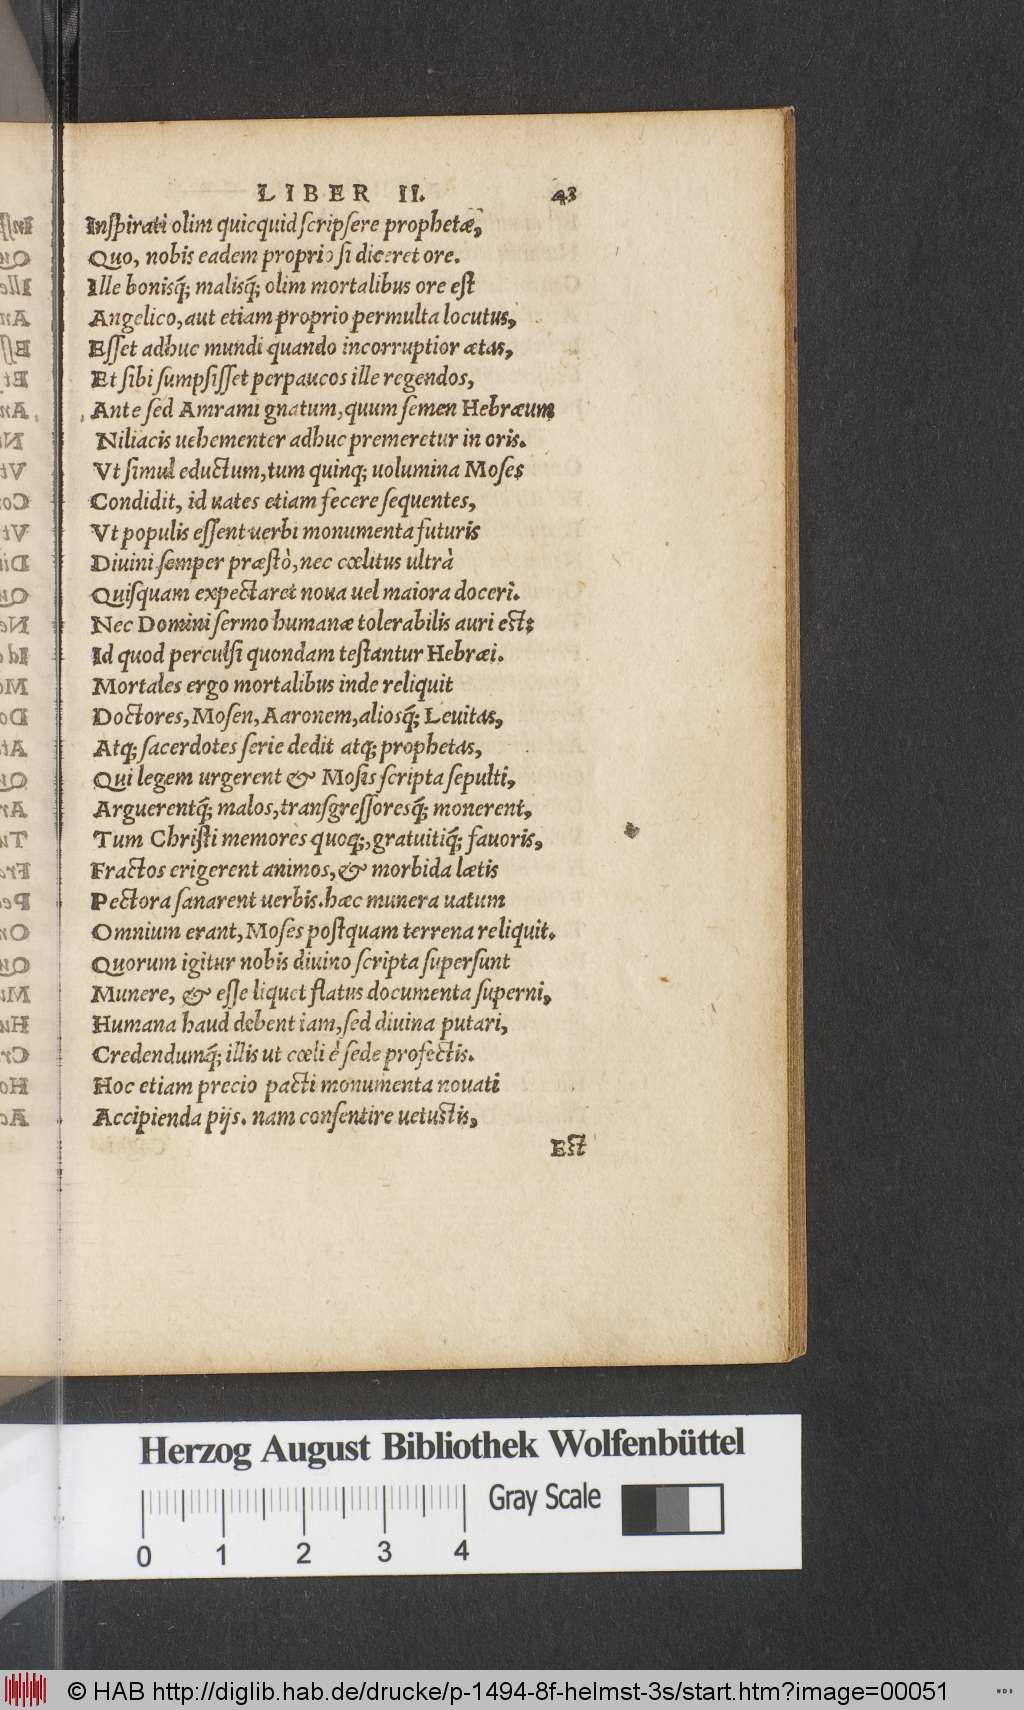 LIBER II. 43
Inſpirati olim quicquid ſcripſere prophetæ,
Quo, nobis eadem proprio ſi diceret ore.
Ille bonisq́; malisq́; olim mortalibus ore eſt
Angelico, aut etiam proprio permulta locutus,
Eſſet adhuc mundi quando incorruptior ætas,
Et ſibi ſumpſiſſet perpaucos ille regendos,
Ante ſed Amrami gnatum, quum ſemen Hebræum
Niliacis uehementer adhuc premeretur in oris.
Vt ſimul eductum, tum quinq; uolumina Moſes
Condidit, id uates etiam fecere ſequentes,
Vt populis eſſent uerbi monumenta futuris
Diuini ſemper præſtò, nec cœlitus ultrà
Quiſquam expectaret noua uel maiora doceri.
Nec Domini ſermo humanæ tolerabilis auri est;
Id quod perculſi quondam teſtantur Hebræi.
Mortales ergo mortalibus inde reliquit
Doctores, Moſen, Aaronem, aliosq́; Leuitas,
Atq; ſacerdotes ſerie dedit atq; prophetas,
Qui legem urgerent & Moſis ſcripta ſepulti,
Arguerentq́; malos, tranſgreſſoresq́; monerent,
Tum Chriſti memores quoq;, gratuitiq́; fauoris,
Fractos erigerent animos, & morbida lætis
Pectora ſanarent uerbis. hæc munera uatum
Omnium erant, Moſes poſtquam terrena reliquit.
Quorum igitur nobis diuino ſcripta ſuperſunt
Munere, & eſſe liquet flatus documenta ſuperni,
Humana haud debent iam, ſed diuina putari,
Credendumq́; illis ut cœli è ſede profectis.
Hoc etiam precio pacti monumenta nouati
Accipienda pijs. nam conſentire uetustis,
Est
Herzog August Bibliothek Wolfenbüttel
Gray Scale
0 1 2 3 4
© HAB http://diglib.hab.de/drucke/p-1494-8f-helmst-3s/start.htm?image=00051